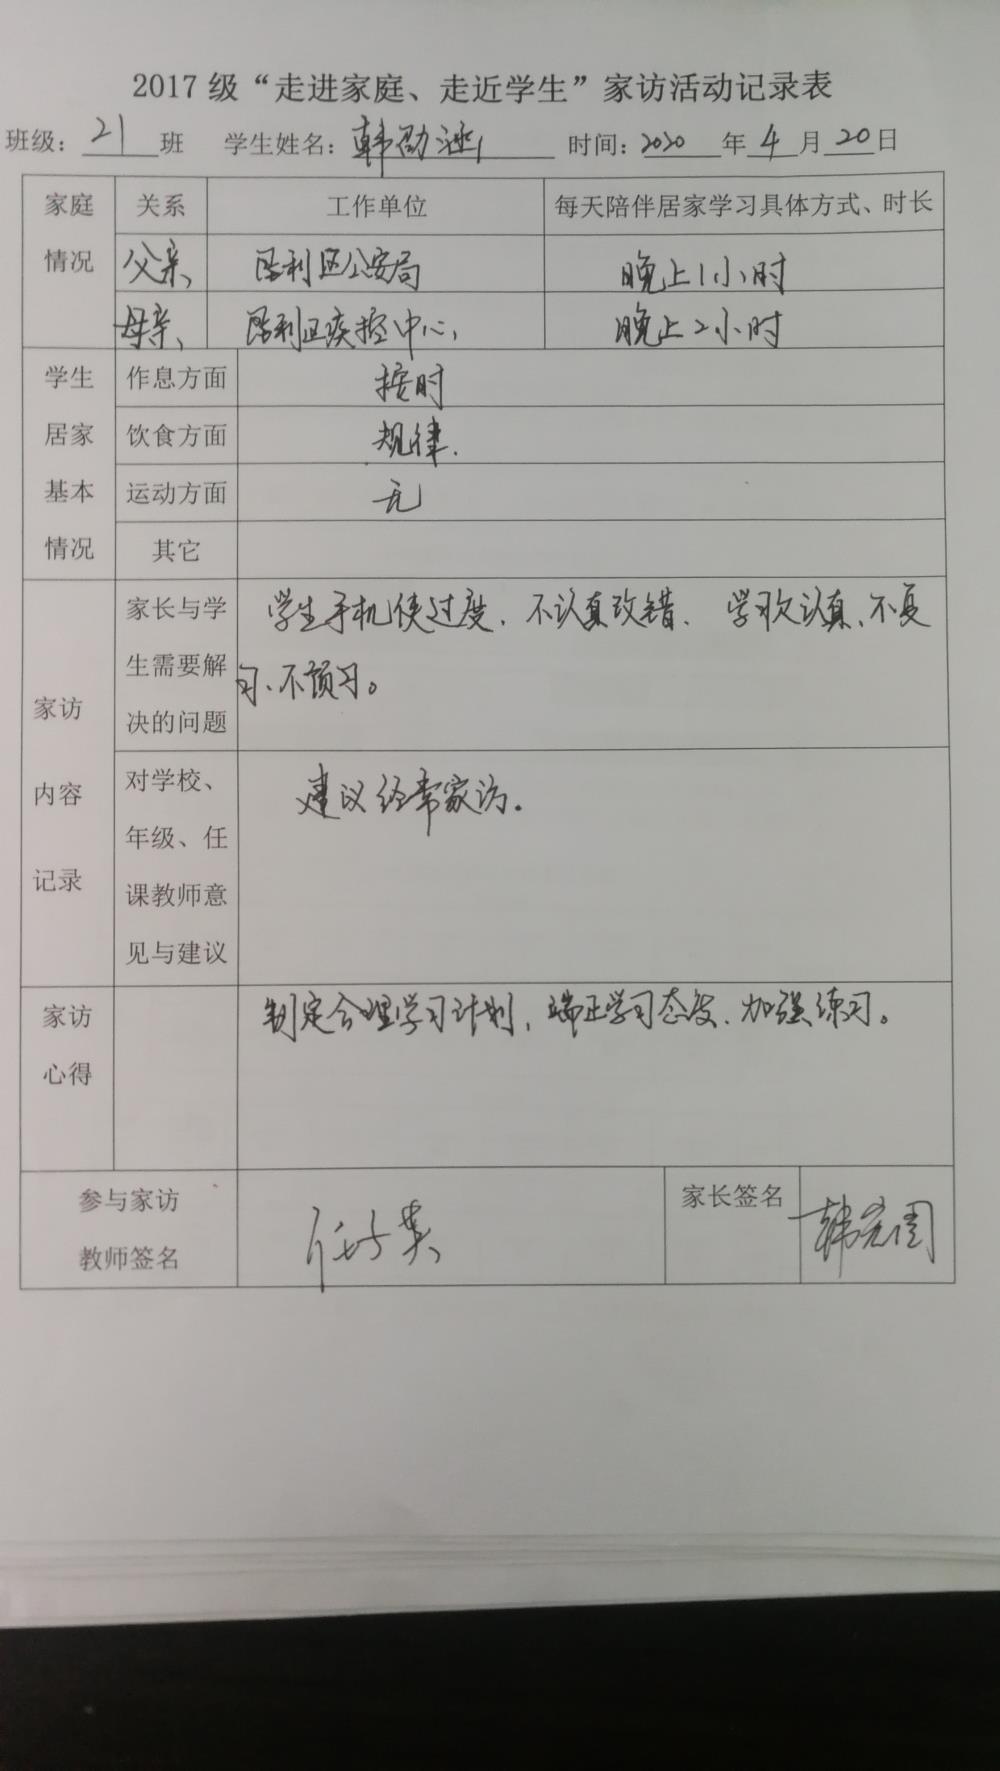 2017 级“走进家庭、走近学生”家访活动记录表
班级: 21 班 学生姓名: 韩 时间: 2020 年 4 月 20 日
家庭 情况 关系 工作单位 每天陪伴居家学习具体方式、时长
父亲 利区公安局 晚上1小时
母亲 利区疾控中心 晚上2小时
学生 居家 基本 情况 作息方面 按时
饮食方面 规律.
运动方面 无
其它
家访 内容 记录
家长与学 学生手机使过度、不认真改错、学认真、不复
生需要解 习、不预习。
决的问题
对学校、 建议经常家访。
年级、任
课教师意
见与建议
家访 制定合理学习计划,端正学习态度、加强练习。
心得
参与家访 家长签名 韩
教师签名